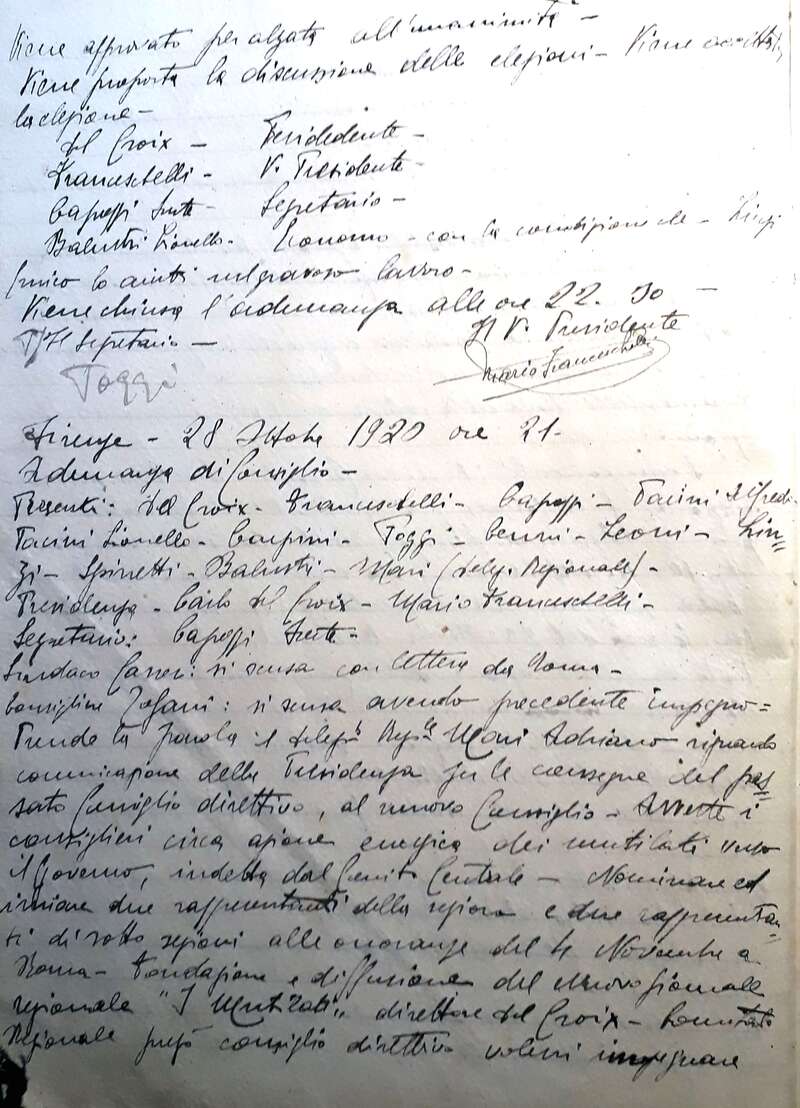 Viene approvato per alzata all'unanimità -
Viene proposta la discussione delle elezioni - Viene accettata
la elezione -
Del Croix - Presidente -
Franceschelli - V. Presidente -
Capezzi Sante - Segretario -
Balustri Lionello - Economo - con la condizione che - Linzi
Enrico lo aiuti nel gravoso lavoro -
Viene chiusa l'adunanza alle ore 22.30 -
Il V. Presidente
p/ Il Segretario -
Mario Franceschelli
Poggi
Firenze - 28 Ottobre 1920 ore 21.
Adunanza di Consiglio -
Presenti: Del Croix - Franceschelli - Capezzi - Pacini Alfredo -
Pacini Lionello - Carpini - Poggi - Cenni - Leoni - Lin=
zi - Spinetti - Balustri - Mari (Deleg. Regionale) -
Presidenza - Carlo Del Croix - Mario Franceschelli -
Segretario: Capezzi Sante -
Sindaco : si scusa con lettera da Roma -
Consigliere : si scusa avendo precedente impegno =
Prende la parola il Deleg. Reg.le Mari Adriano riguardo
comunicazione della Presidenza per le consegne del pas=
sato Consiglio direttivo, al nuovo Consiglio - Avverte i
consiglieri circa azione energica dei mutilati verso
il Governo, indetta dal Comitato Centrale - Nominare ed
inviare due rappresentanti della regione e due rappresentan=
ti di sotto sezioni alle onoranze del 4 Novembre a
Roma - Fondazione e diffusione del nuovo giornale
regionale "I Mutilati" direttore Del Croix - Comitato
Regionale prega consiglio direttivo volersi impegnare